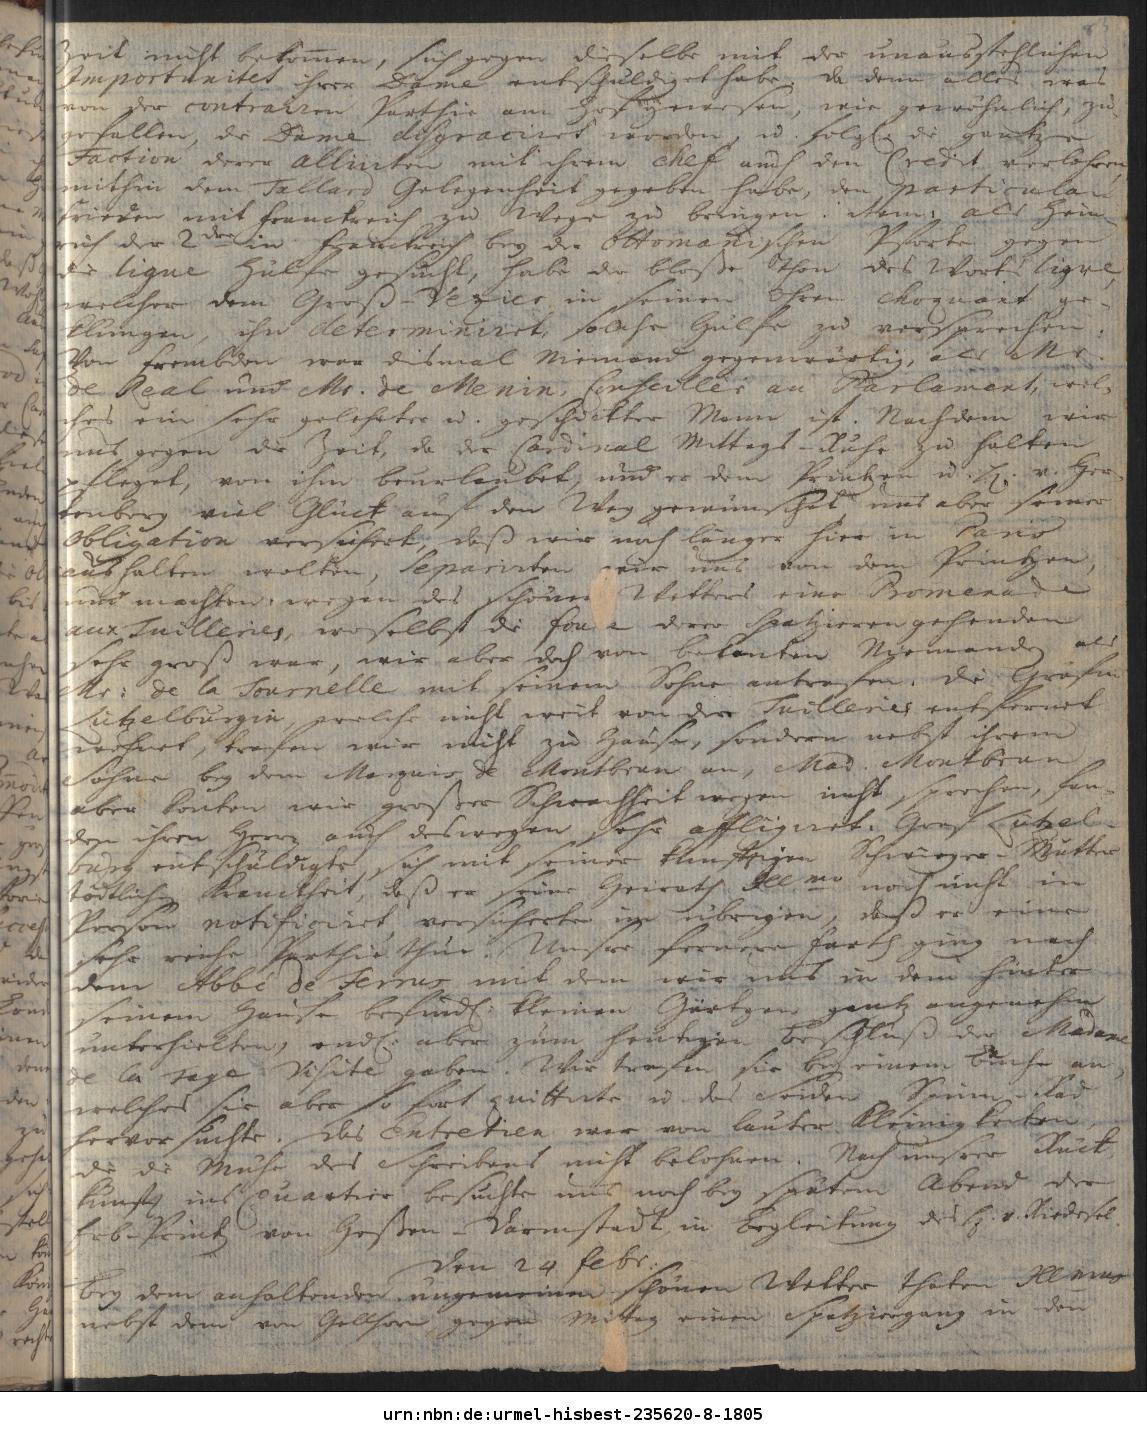 Zeit nicht bekom̄en, sich gegen dieselbe mit der unausstehlichen
Importunitet ihrer Dame entschuldiget habe, da denn alles was
von der contrairen Parthie am Hof gewesen, wie gewöhnlich, zu-
gefallen, die Dame disgraciret worden, u. folgl. die gantze
Faction derer Alliirten mit ihrem Chef auch den Credit verlohren,
mithin dem Tallard Gelegenheit gegeben habe, den particulair
Frieden mit Franckreich zu Wege zu bringen. Item: als Hein-
rich der 2dre in Franckreich bey der Ottomanischen Pforte gegen
die ligue Hülfe gesucht, habe der blosse Thon des Worts ligue,
welcher dem Groß-Vezier in seinen Ohren choquant ge-
klungen, ihn determiniret, solche Hülfe zu versprechen.
Von Frembden war dismal Niemand gegenwärtig, als Mr.
de Real und Mr. de Menin, Conseiller au Parlament, wel-
ches ein sehr gelehrter u. geschickter Mann ist. Nachdem wir
uns gegen die Zeit, da der Cardinal Mittags-Ruhe zu halten
pfleget, von ihm beurlaubet, und er dem Printzen u. H. v. Her-
tenberg viel Glück auf den Weg gewünschet, uns aber seiner
Obligation versichert, daß wir noch länger hier in Paris
aushalten wolten, separirten wir uns von dem Printzen,
und machten wegen des schönen Wetters eine Promenade
aux Tuilleries, woselbst die foule derer Spatzierengehenden
sehr groß war, wir aber doch von bekanten Niemanden als
Mr: de la Tournelle mit seinem Sohne antrafen. Die Gräfin
Lützelburgin, welche nicht weit von den Tuilleries entfernet
wohnet, trafen wir nicht zu Hause, sondern nebst ihrem
Sohne bey dem Marquis de Montbrun an, Mad. Montbrun
aber konten wir grosser Schwachheit wegen nicht sprechen, fan-
den ihren Herrn auch deswegen sehr affligiret. Graf Lützel-
burg entschuldigte sich mit seiner künftigen Schwieger-Mutter
tödtlichen Kranckheit, daß er seine Heirath Illmo noch nicht in
Person notificiret, versicherte im übrigen, daß er eine
sehr reiche Parthie thue. Unsre fernere Farth ging nach
dem Abbé de Ferrus mit dem wir uns in dem hinter
seinem Hause befindl. kleinen Gärtgen gantz angenehm
unterhielten, endl. aber zum heutigen Beschluß der Madame
de la Sage Visite gaben. Wir trafen sie bey einem Buche an,
welches sie aber so fort quittirte u. das Seiden Spinn-Rad
hervor suchte. Das Entretien war von lauter Kleinigkeiten,
die die Mühe des Schreibens nicht belohnen. Nach unsrer Rück-
kunft ins Quartier besuchte uns noch bey spätem Abend der
Erb-Printz von Hessen-Darmstadt in Begleitung des H. v. Riedesel.
Den 24 Febr.
Bey dem anhaltenden ungemeinen schönen Wetter thaten Illmus
nebst dem von Gellhorn gegen Mittag einen Spatziergang in den
urn:nbn:de:urmel-hisbest-235620-8-1805